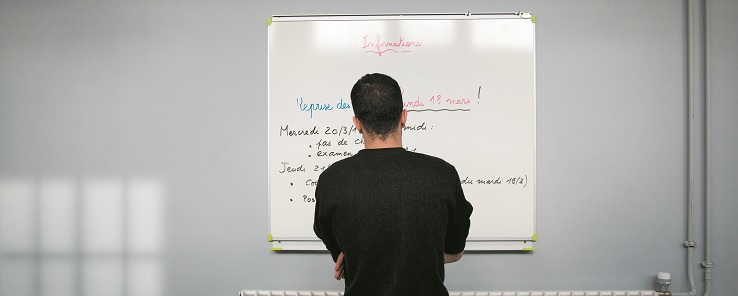 Informations
Reprise des undi 18 mars !
Mercredi 20/3/1 midi :
• pas de c
• examen
Jeudi 21/
• co du mardi 18/3)
• Pas